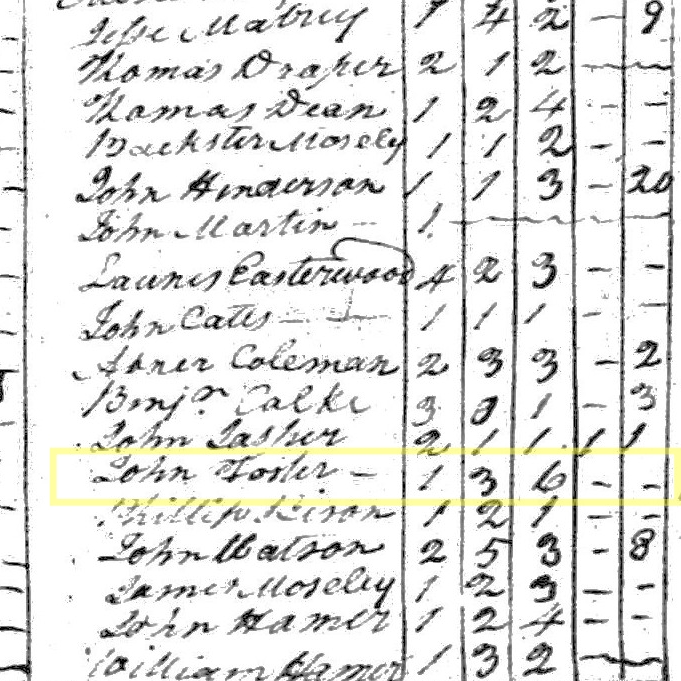 Jesse Mabrey 7 4 2 – 9
Thomas Draper 2 1 2 – –
Thomas Dean 1 2 4 – –
Backster Mosely 1 1 2 – –
John Henderson 1 1 3 – 20
John Martin – 1 – – – –
Launes Easterwood 4 2 3 – –
John Cates – – 1 1 1 – –
Abner Coleman 2 3 3 – 2
Benjn. 3 1 – 3
John 2 1 1 1 1
John Foster – 1 3 6 – –
Phillip 1 2 1 – –
John Watson 2 5 3 – 8
James Moseley 1 2 3 – –
John Hamer 1 2 4 – –
William Hamer 1 3 2 – –